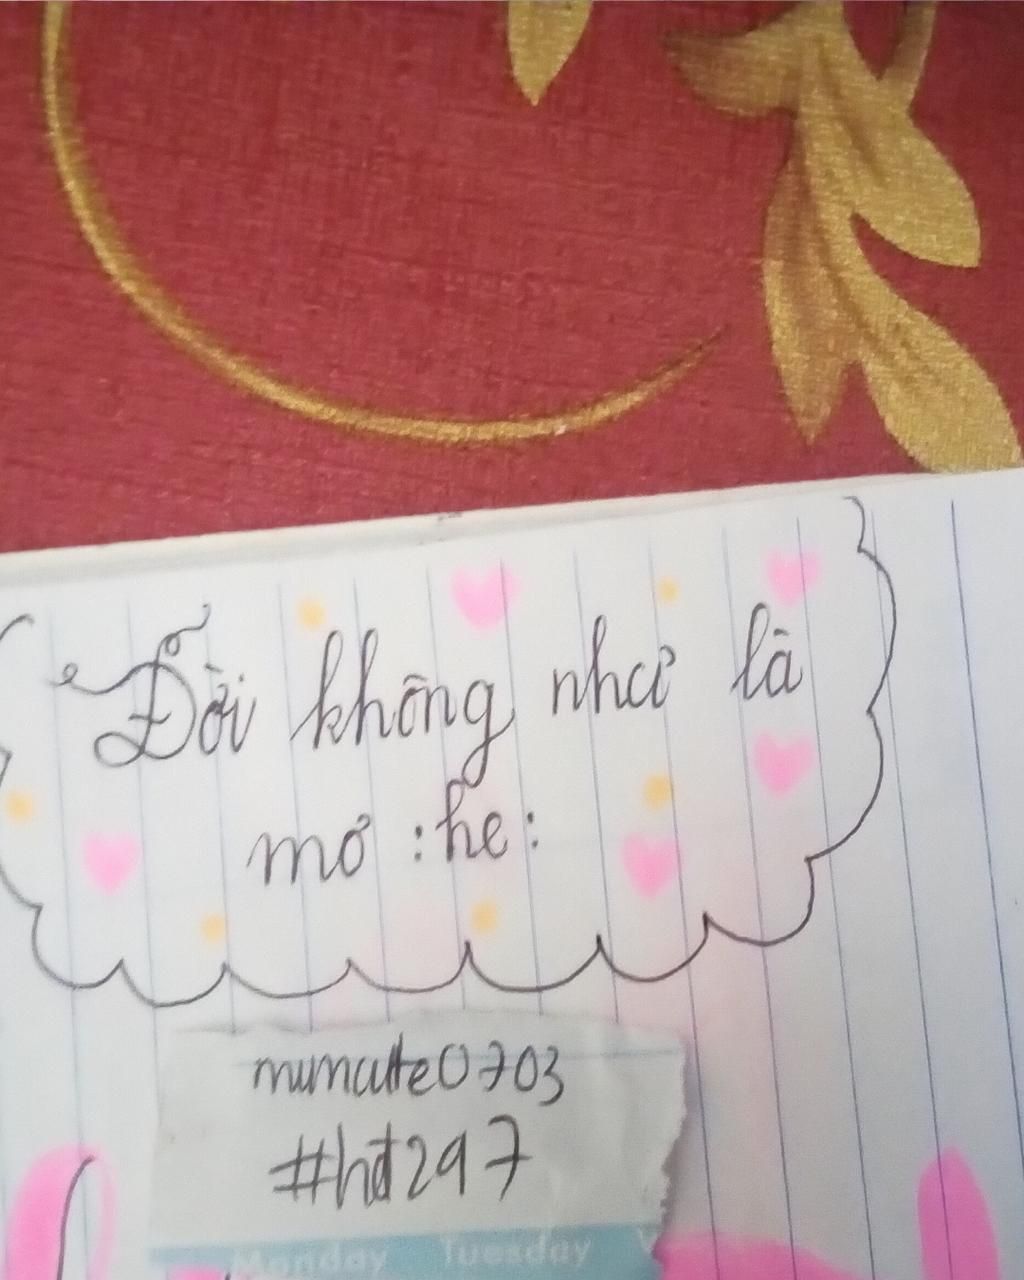 Đời không như là
mơ :he:
mumcutte0703
#hđ297
Monday Tuesday